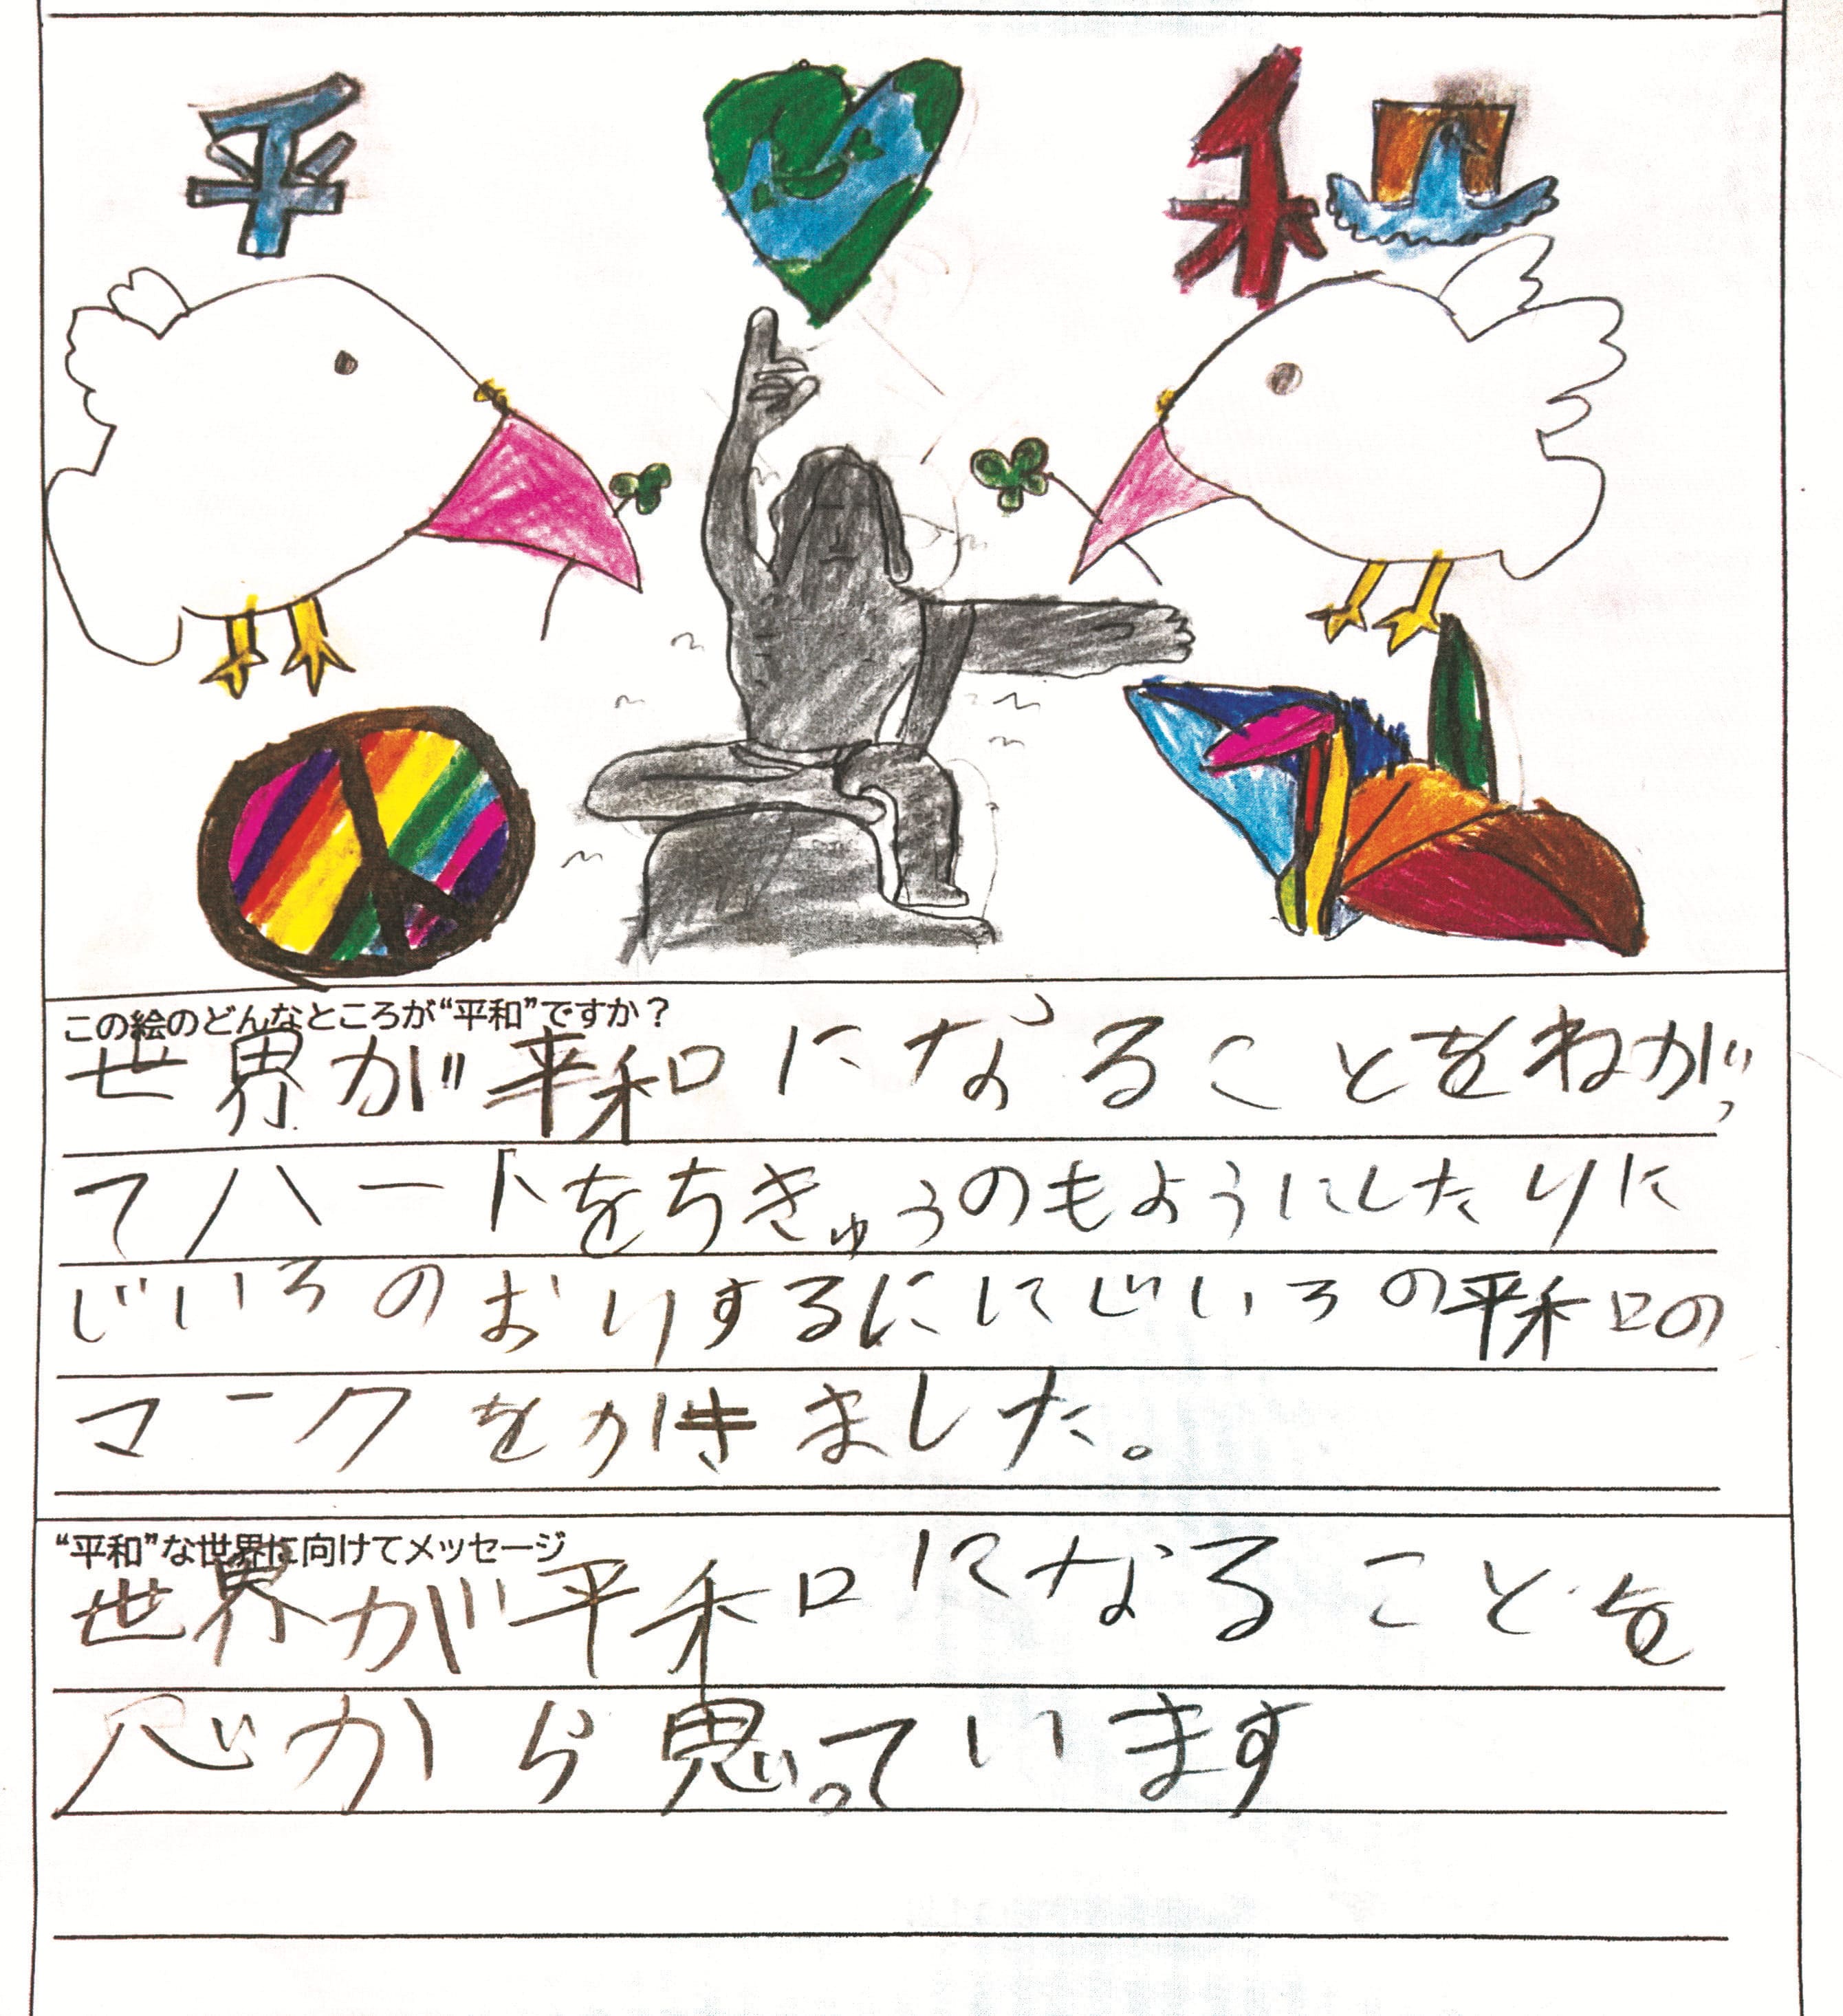 平 和
この絵のどんなところが“平和”ですか?
世界が平和になることをねがっ
てハートをちきゅうのもようにしたりに
じいろのおりずるににじいろの平和の
マークをかきました。
“平和”な世界に向けてメッセージ
世界が平和になることを
心から思っています